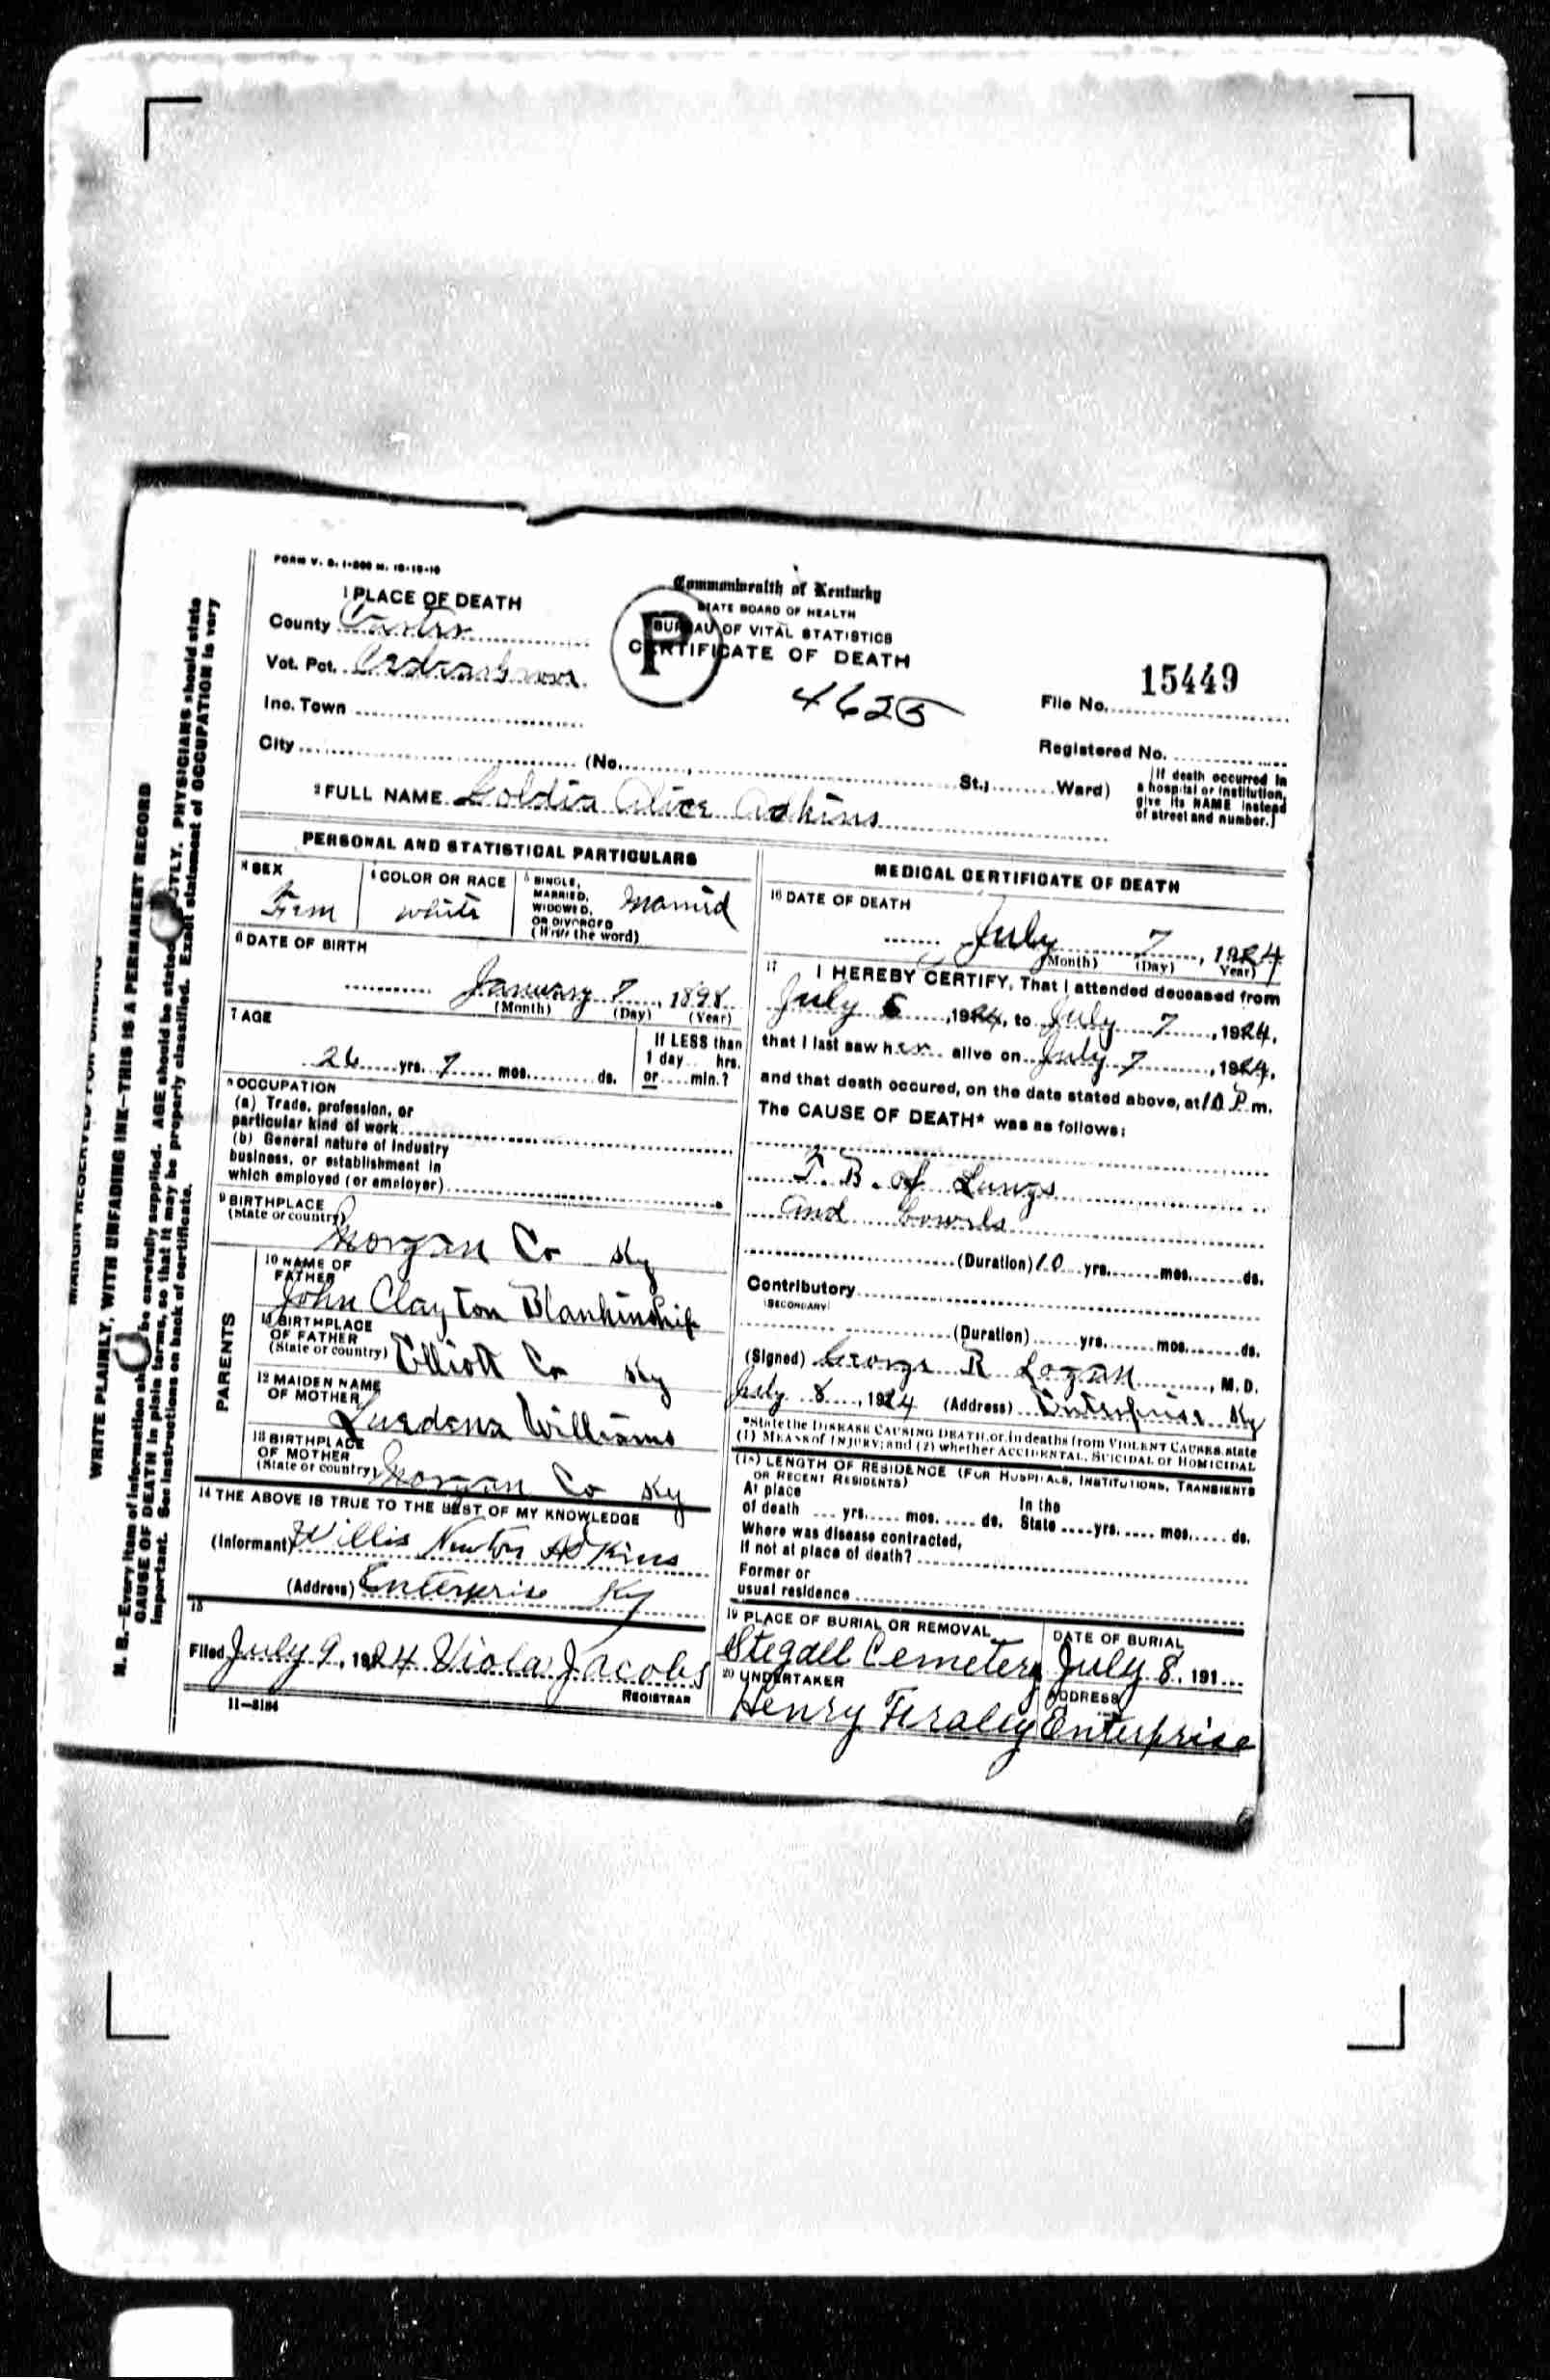 FORM V. S. 1-500 M. 10-19-16
1 PLACE OF DEATH
County Carter
Vot. Pct.
Inc. Town
City (No. , St.; Ward)
Commonwealth of Kentucky
STATE BOARD OF HEALTH
BUREAU OF VITAL STATISTICS
CERTIFICATE OF DEATH
P
4625
15449
File No.
Registered No.
[If death occurred in
a hospital or institution,
give its NAME instead
of street and number.]
2 FULL NAME Goldia Alice Adkins
PERSONAL AND STATISTICAL PARTICULARS
3 SEX
Fem
4 COLOR OR RACE
white
5 SINGLE,
MARRIED,
WIDOWED,
OR DIVORCED
(Write the word)
Married
6 DATE OF BIRTH
January 7, 1898
(Month) (Day) (Year)
7 AGE
26 yrs. 7 mos. ds.
If LESS than
1 day hrs.
or min.?
8 OCCUPATION
(a) Trade, profession, or
particular kind of work
(b) General nature of Industry
business, or establishment in
which employed (or employer)
9 BIRTHPLACE
(State or country)
Morgan Co Ky
PARENTS
10 NAME OF
FATHER
John Clayton Blankinship
11 BIRTHPLACE
OF FATHER
(State or country) Elliott Co Ky
12 MAIDEN NAME
OF MOTHER
Luerdena Williams
13 BIRTHPLACE
OF MOTHER
(State or country) Morgan Co Ky
14 THE ABOVE IS TRUE TO THE BEST OF MY KNOWLEDGE
(Informant) Willis Newton Adkins
(Address) Enterprise Ky
15
Filed July 9, 1924 Viola Jacobs
REGISTRAR
11-3184
MEDICAL CERTIFICATE OF DEATH
16 DATE OF DEATH
July 7, 1924
(Month) (Day) Year)
17 I HEREBY CERTIFY, That I attended deceased from
July 5, 1924, to July 7, 1924,
that I last saw her alive on July 7, 1924,
and that death occured, on the date stated above, at 10 P. m.
The CAUSE OF DEATH* was as follows:
T. B. of Lungs
and bowels
(Duration) 10 yrs. mos. ds.
Contributory
(SECONDARY)
(Duration) yrs. mos. ds.
(Signed) George R Logan, M. D.
July 8, 1924 (Address) Enterprise Ky
*State the DISEASE CAUSING DEATH, or, in deaths from VIOLENT CAUSES, state
(1) MEANS of INJURY; and (2) whether ACCIDENTAL, SUICIDAL or HOMICIDAL
(18) LENGTH OF RESIDENCE (FOR HOSPITALS, INSTITUTIONS, TRANSIENTS
OR RECENT RESIDENTS)
At place
of death yrs. mos. ds.
In the
State yrs. mos. ds.
Where was disease contracted,
if not at place of death?
Former or
usual residence
19 PLACE OF BURIAL OR REMOVAL
Stegall Cemetery
DATE OF BURIAL
July 8, 191
20 UNDERTAKER
Henry Fraley
ADDRESS
Enterprise
MARGIN RESERVED FOR BINDING
WRITE PLAINLY, WITH UNFADING INK—THIS IS A PERMANENT RECORD
N. B.—Every item of information should be carefully supplied. AGE should be stated EXACTLY. PHYSICIANS should state
CAUSE OF DEATH in plain terms, so that it may be properly classified. Exact statement of OCCUPATION is very
important. See instructions on back of certificate.